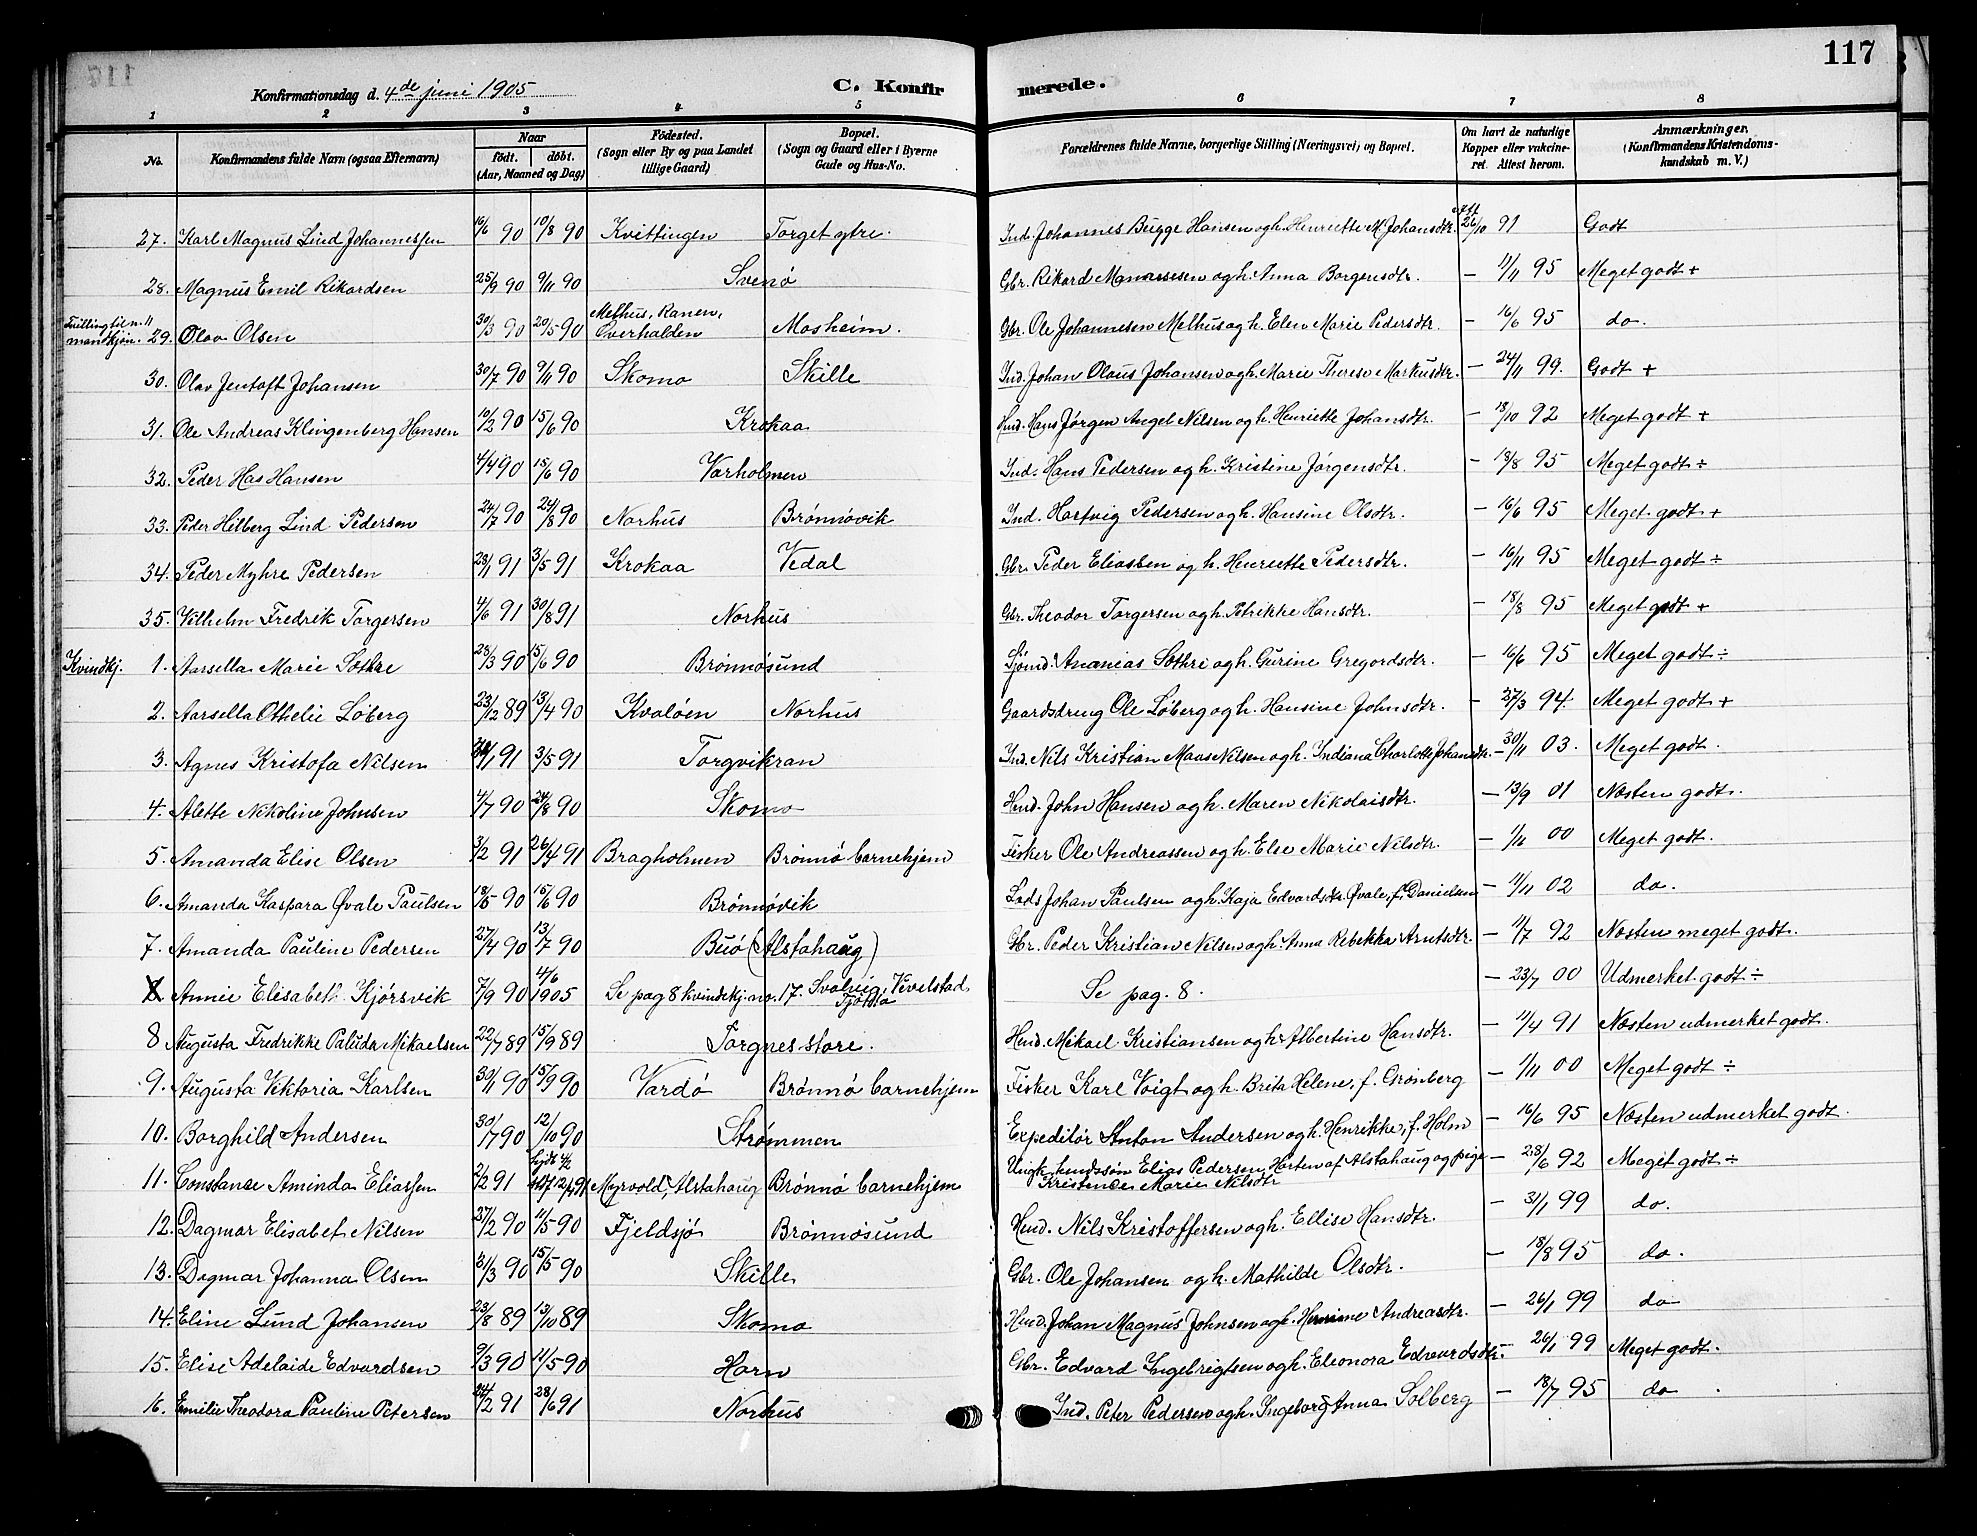 117
Konfirmationsdag d. 4de juni 1905
C. Konfirmerede.
1 2 3 4 5 6 7 8
No. Konfirmandens fulde Navn (ogsaa Efternavn) Naar født. døbt. (Aar, Maaned og Dag) Fødested. (Sogn eller By og paa Landet tillige Gaard) Bopæl. (Sogn og Gaard eller i Byerne Gade og Hus-No. Forældrenes fulde Navne, borgerlige Stilling (Næringsvei) og Bopæl. Om havt de naturlige Kopper eller vakcineret. Attest herom. Anmærkninger. (Konfirmandens Kristendomskundskab m. V.)
27. Karl Magnus Lind Johannessen 16/6 90 10/8 90 Kvittingen Torget ytre. Ind. Johannes Bugge Hansen og h. Henriette M. Johansdtr. att 26/10 91 Godt
28. Magnus Emil Rikardsen 25/9 90 9/11 90 Svenø Gbr. Rikard Manassesen og h. Anna Borgersdtr. — 11/11 95 Meget godt +
Tvilling til n. 11 mandkjøn. 29. Olav Olsen 30/3 90 20/5 90 Melhus, Ranen, Overhalden Mosheim. Gbr. Ole Johannesen Melhus og h. Elen Marie Pedersdtr. — 16/6 95 do.
30. Olav Jentoft Johansen 30/7 90 9/11 90 Skomo Skille Ind. Johan Olaus Johansen og h. Marie Therese Markusdtr. — 24/11 99. Godt +
31. Ole Andreas Klingenberg Hansen 10/2 90 15/6 90 Krokaa Hmd. Hans Jørgen Angel Nilsen og h. Henriette Johansdtr. — 18/10 92 Meget godt +
32. Peder Has Hansen 4/4 90 15/6 90 Varholmen Ind. Hans Pedersen og h. Kristine Jørgensdtr. — 18/8 95 Meget godt ÷
33. Peder Helberg Lind Pedersen 24/7 90 24/8 90 Norhus Brønnøvik Ind. Hartvig Pedersen og h. Hansine Olsdtr. — 16/6 95 Meget godt +
34. Peder Myhre Pedersen 28/1 91 3/5 91 Krokaa Vedal Gbr. Peder Eliassen og h. Henriette Pedersdtr. — 16/11 95 Meget godt ÷
35. Vilhelm Fredrik Torgersen 4/6 91 30/8 91 Norhus Gbr. Theodor Torgersen og h. Petrikke Hansdtr. — 18/8 95 Meget godt +
Kvindkj. 1. Aarsella Marie Sothre 28/3 90 15/6 90 Brønnøsund Sjømd. Ananias Sothre og h. Gurine Gregordsdtr. — 16/6 95 Meget godt ÷
2. Aarsella Othelie Løberg 23/12 89 13/4 90 Kvaløen Norhus Gaardsdreng Ole Løberg og h. Hansine Johnsdtr. — 27/3 94. Meget godt +
3. Agnes Kristofa Nilsen 91 3/5 91 Torgvikran Ind. Nils Kristian Maas Nilsen og h. Indiana Charlotte Johansdtr. — 30/11 03. Meget godt.
4. Alette Nikoline Johnsen 4/7 90 24/8 90 Skomo Hmd. John Hansen og h. Maren Nikolaisdtr. — 13/9 01 Næsten godt.
5. Amanda Elise Olsen 3/2 91 26/4 91 Bragholmen Brønnø barnehjem Fisker Ole Andreassen og h. Else Marie Nilsdtr. — 1/11 00 Meget godt.
6. Amanda Kaspara Øvale Paulsen 18/5 90 15/6 90 Brønnøvik Lods Johan Paulsen og h. Kaja Edvardsdtr. Øvale, f. Danielsen — 11/11 02 do.
7. Amanda Pauline Pedersen 27/4 90 13/7 90 Buø (Alstahaug) Gbr. Peder Kristian Nilsen og h. Anna Rebekka Arntsdtr. — 11/7 92 Næsten meget godt.
8 Annie Elisabeth Kjørsvik 7/9 90 4/6 1905 Se pag 8 kvindekj. no. 17. Solvig, Vevelstad Tjøtta Se pag. 8. — 23/7 00 Udmerket godt ÷
8 Augusta Fredrikke Paluda Mikaelsen 22/7 89 15/9 89 Torgnes store. Hmd. Mikael Kristiansen og h. Albertine Hansdtr. — 11/4 91 Næsten udmerket godt.
9. Augusta Viktoria Karlsen 30/1 90 15/9 90 Vardø Brønnø barnehjem Fisker Karl Voigt og h. Brita Helene, f. Grønberg — 1/11 00 Meget godt ÷
10. Borghild Andersen 30/7 90 12/10 90 Strømmen Expeditør Anton Andersen og h. Henrikke, f. Holm — 16/6 95 Næsten udmerket godt.
11. Constanse Aminda Eliassen 2/2 91 hjdt 4/2 91 Myrvold, Alstahaug Brønnø barnehjem Ungk. husmssøn Elias Pedersen Horten af Alstahaug og pige Kristense Marie Nilsdtr — 28/6 92 Meget godt ÷
12. Dagmar Elisabet Nilsen 27/2 90 11/5 90 Fjeldsjø Brønnøsund Hmd. Nils Kristoffersen og h. Ellise Hansdtr. — 31/1 99 do.
13. Dagmar Johanna Olsen 31/3 90 15/5 90 Skille Gbr. Ole Johansen og h. Mathilde Olsdtr. — 18/8 95 do.
14. Eline Lund Johansen 23/8 89 13/10 89 Skomo Hmd. Johan Magnus Johnsen og h. Hermine Andreasdtr. — 26/1 99 do
15. Elise Adelaide Edvardsen 9/3 90 11/5 90 Horn Gbr. Edvard Ingebrigtsen og h. Eleonora Edvardsdtr. — 26/1 99 Meget godt.
16. Emilie Theodora Pauline Petersen 24/2 91 28/6 91 Norhus Ind. Peter Pedersen og h. Ingeborg Anna Solberg — 18/7 95 do